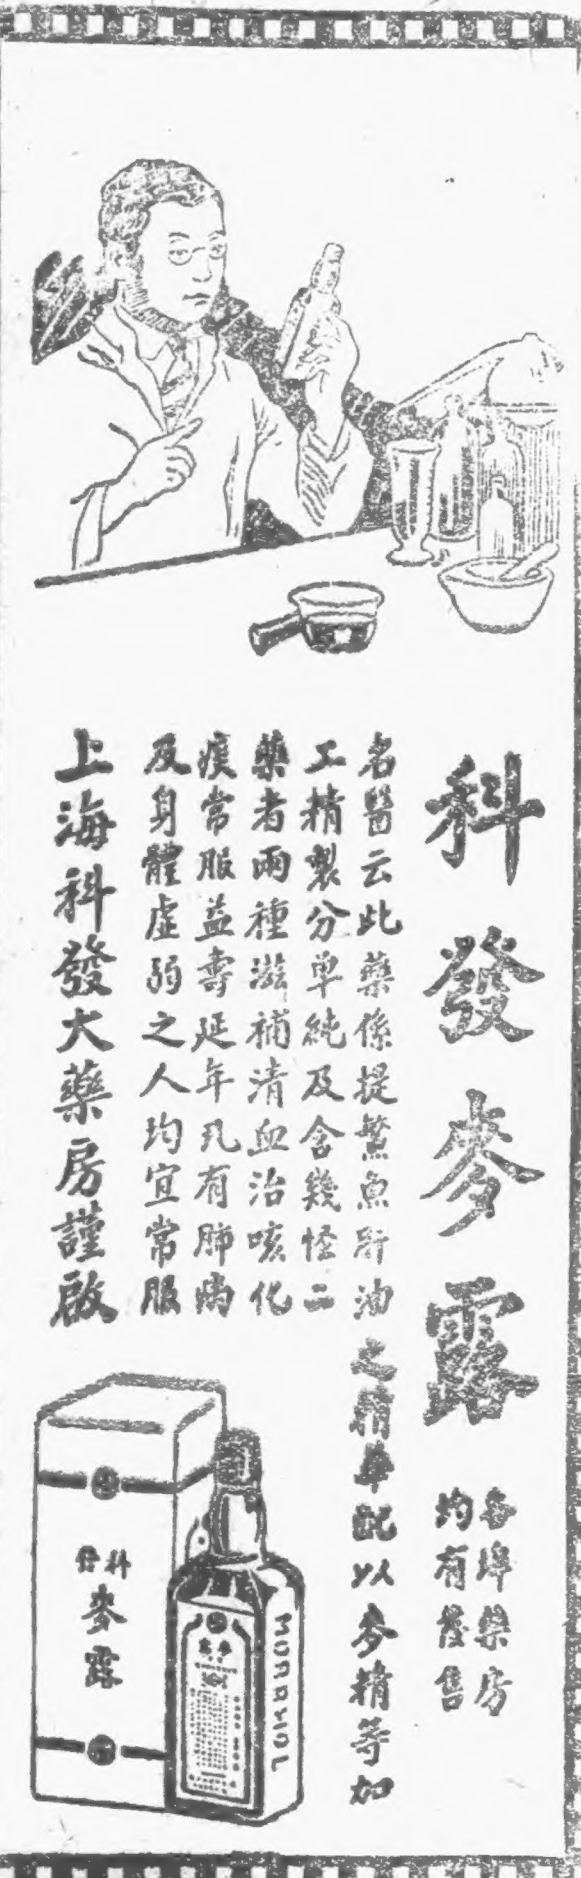 科發麥露
各埠藥房
均有發售
名醫云此藥係提鰵魚肝油之精華配以麥精等加
工精製分單純及含幾怪二
藥者兩種滋補清血治咳化
痰常服益壽延年凡有肺癆
及身體虛弱之人均宜常服
上海科發大藥房謹啟
科發
麥露
MORRHOL